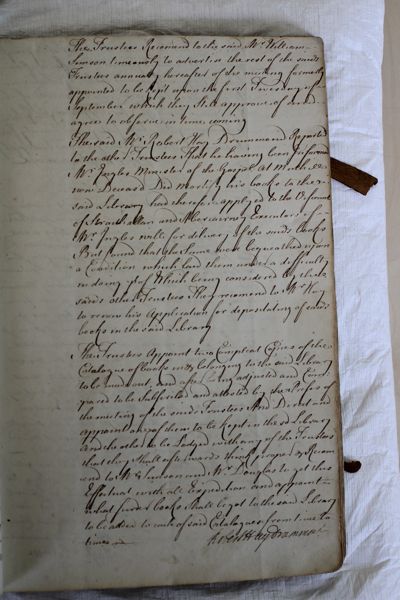 The Trustees Recomend to the said Mr. William
Simson timeously to advertise the rest of the saids
Trustees annualy hereafter of the meeting formerly
appointed to be kept upon the first Tuesday of
September which they still approve of and
agree to observe in time coming
The said Mr Robert Hay Drummond Reported
to the other Trustees That he having been informed
Mr Ingles Minister of the Gospel At
now Deceased Did Mortify his books to the
said Library had therefore applyed to the
of Strathallan and Executors of
Mr Ingles will for delivery of the saids books
But found that the Same were bequeathed upon
a Condition which laid them under a difficulty
in doing it Which being considered by the
saids other Trustees They recomend to Mr Hay
to renew his Application for depositating of saids
books in the said Library
The Trustees Appoint two Compleat Copies of the
Catalogue of books belonging to the said Library
to be made out, and after being adjusted and Com
pared to be Subscribed and attested by the Preses of
the meeting of the saids Trustees And Direct and
appoint one of them to be kept in the sd Library
And the other to be Lodged with any of the Trustees
that they shall afterwards think proper & Recom
end to Mr Simson and Mr Douglas to get this
Effectuat with all Expedition and appoint
what further books shall be got to the said Library
to be added to each of said Catalogues from time to
time
Robert Hay Drummond